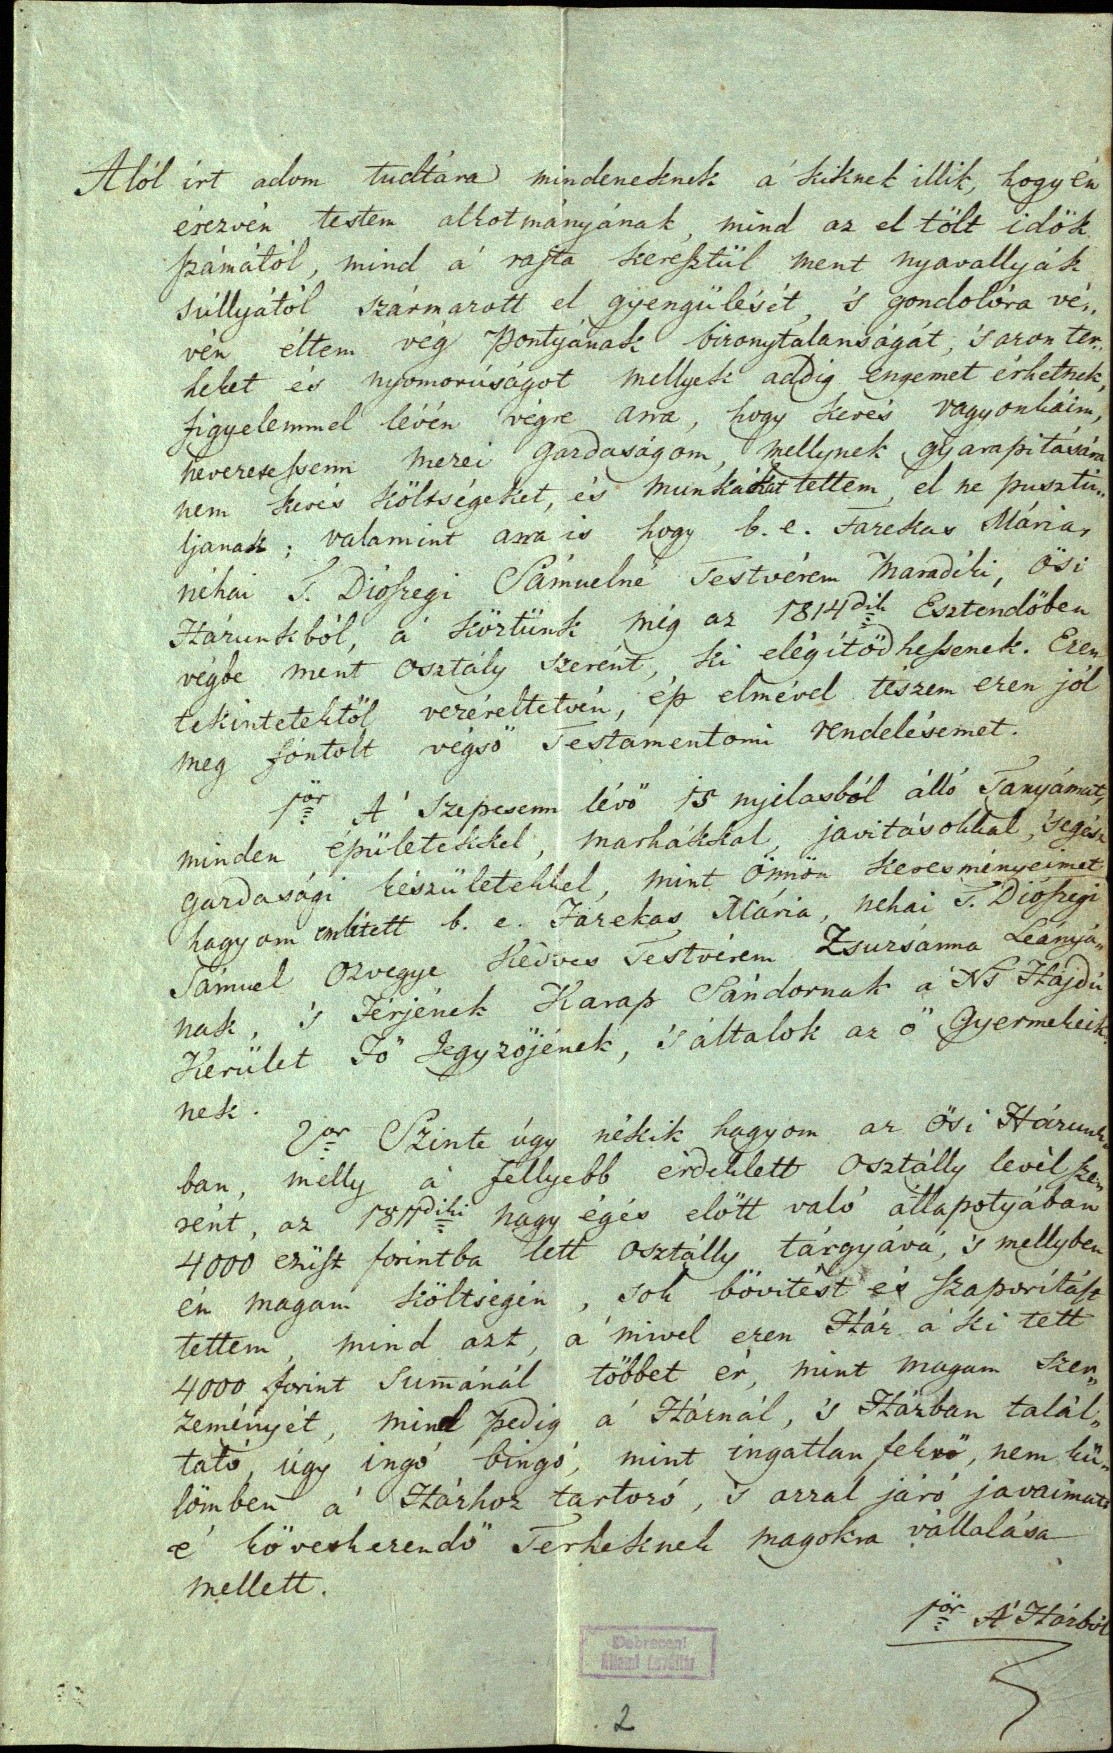 Alól irt adom tudtára mindeneknek á kiknek illik, hogy én
érezvén testem alkotmányának, mind az el tölt idők
számától, mind á rajta keresztül ment nyavallyák
súllyától származott el gyengülését, 's gondolóra vé„
vén éltem vég pontyának bizonytalanságát, 's azon ter„
heket és nyomorúságot mellyek addig engemet érhetnek,
figyelemmel lévén végre arra, hogy kevés vagyonkáim,
heveresessenn mezei gazdaságom, mellynek gyarapitására
nem kevés költségeket, és munkákat tettem, el ne pusztú„
ljanak; valamint arra is hogy b. e. Fazekas Mária,
néhai T. Diószegi Sámuelné Testvérem Maradéki, ősi
Házunkból, á köztünk még az 1814dik Esztendőben
végbe ment osztály szerént, ki elégítődhessenek. Ezen
tekintetektől vezéreltetvén, ép elmével tészem ezen jól
meg fontolt végső Testamentomi rendelésemet.
1ör A' Szepesenn lévő 15 nyilasból álló Tanyámat,
minden épületekkel, marhákkal, javitásokkal, 's egész
gazdasági készületekkel, mint önnön keresményeimet
hagyom emlitett b. e. Fazekas Mária, nehai T. Diószegi
Sámuel özvegye Kedves Testvérem Zsuzsánna Leányá„
nak, 's Férjének Karap Sándornak á Ns Hajdú
Kerület Fő Jegyzőjének, 's általok az ő Gyermekeik„
nek.
2or Szinte úgy nékik hagyom az ősi Házunk„
ban, melly á fellyebb érdeklett osztálly levél sze„
rént, az 1811diki nagy égés előtt való állapotyában
4000 ezüst forintba lett osztálly tárgyává, 's mellyben
én magam költségén, sok bővitést és szaporitást
tettem, mind azt, á mivel ezen Ház á ki tett
4000 forint Sumánál többet ér, mint magam szer„
zeményét, mind pedig á Háznál, 's Házban talál„
tató, úgy ingó bingó, mint ingatlan fekvő, nem kü„
lömben á Házhoz tartozó, 's azzal járó javaimat
é következendő Terheknek magokra vállalása
mellett.
1ör A' Házból
Debreceni
Állami Levéltár
2